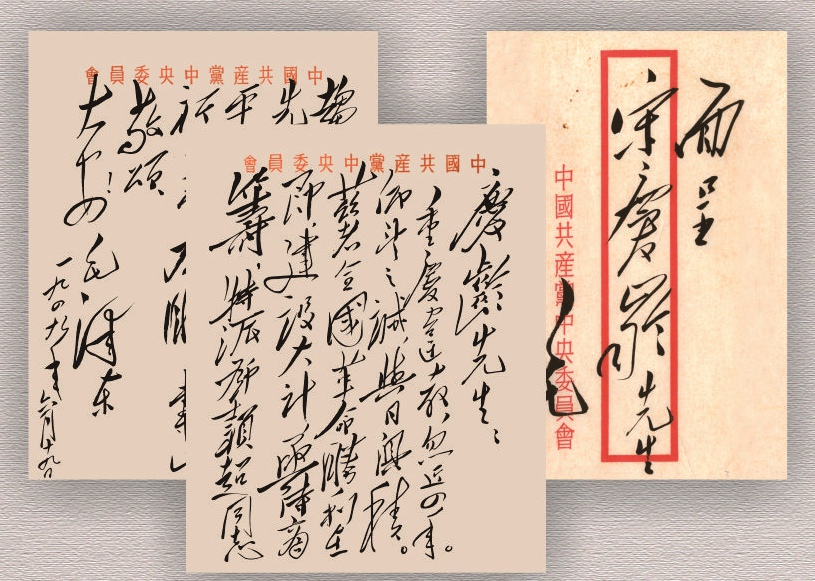 中國共産黨中央委員會
先
平
祈
敬頌
大安！
毛澤東
一九四九年六月十九日
中國共産黨中央委員會
慶齡先生：
重慶違教忽近四年。
仰望之誠與日俱積。
茲者全國革命勝利在
即建設大計亟待商
籌特派鄧穎超同志
面呈
宋慶齡先生
中國共産黨中央委員會
毛